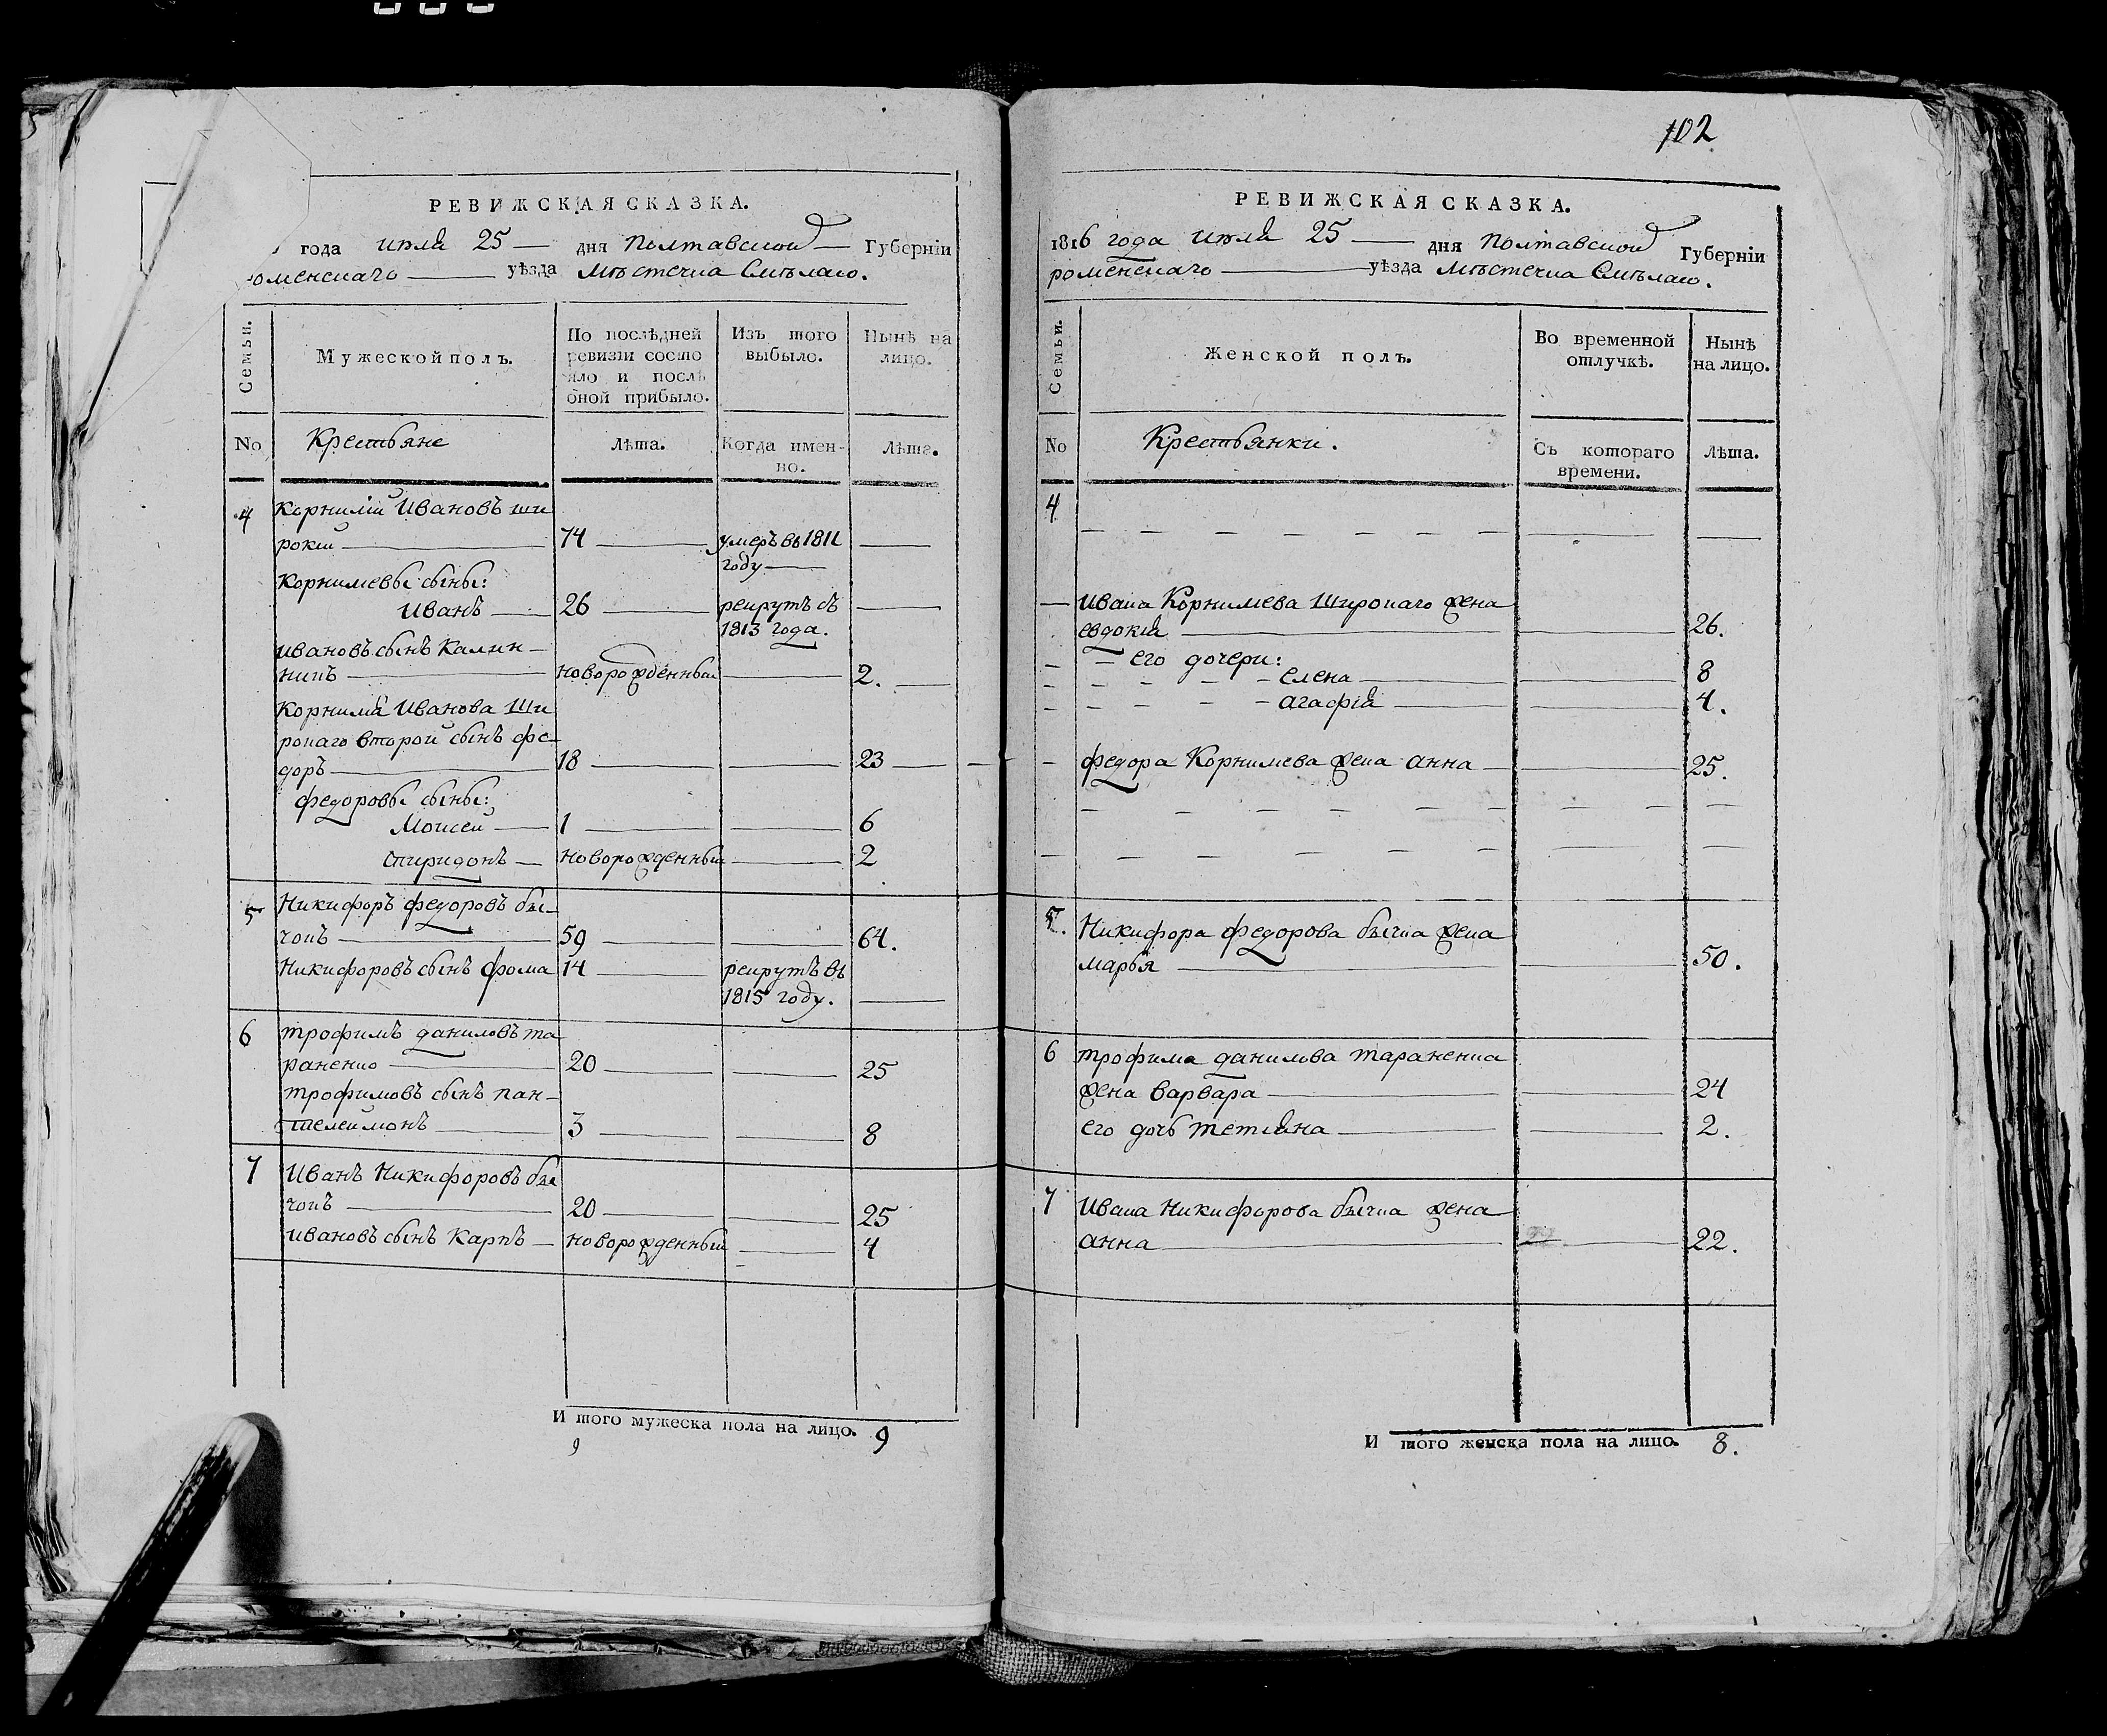 РЕВИЖСКАЯ СКАЗКА.
года июля 25 дня Полтавской Губерніи
роменскаго уѣзда Мѣстечка Смѣлаго.
Семьи.
Мужеской полъ.
По послѣдней
ревизіи состо
яло и послѣ
оной прибыло.
Изъ того
выбыло.
Нынѣ на
лицо.
No
Крестьяне
Лѣта.
Когда имен-
но.
Лѣта.
4
Корнилій Ивановъ ши
рокій 74 умеръ въ 1811
году
Корнилевы сыны:
Иванъ 26 рекрутъ съ
1813 года.
ивановъ сынъ Калин-
никъ новорожденный 2.
Корнилія Иванова Ши
рокаго второй сынъ фе-
доръ 18 23
федоровы сыны:
Моисей 1 6
спиридонъ новорожденный 2
5 Никифоръ федоровъ бы-
чокъ 59 64.
Никифоровъ сынъ фома 14 рекрутъ въ
1815 году.
6 трофимъ даниловъ та
раненко 20 25
трофимовъ сынъ пан-
телеймонъ 3 8
7 Иванъ Никифоровъ бы
чокъ 20 25
ивановъ сынъ Карпъ новорожденный 4
И того мужеска пола на лицо. 9
9
102
РЕВИЖСКАЯ СКАЗКА.
1816 года июля 25 дня Полтавской Губерніи
роменскаго уѣзда Мѣстечка Смѣлаго.
Семьи.
Женской полъ.
Во временной
отлучкѣ.
Нынѣ
на лицо.
No
Крестьянки.
Съ котораго
времени.
Лѣта.
4
Ивана Корнилева Широкаго жена
евдокія 26.
его дочери:
елена 8
агафія 4.
федора Корнилева жена анна 25.
5. Никифора федорова бычка жена
марья 50.
6 трофима данилова тараненка
жена варвара 24
его дочь тетяна 2.
7 Ивана Никифорова бычка жена
анна 22.
И того женска пола на лицо. 8.